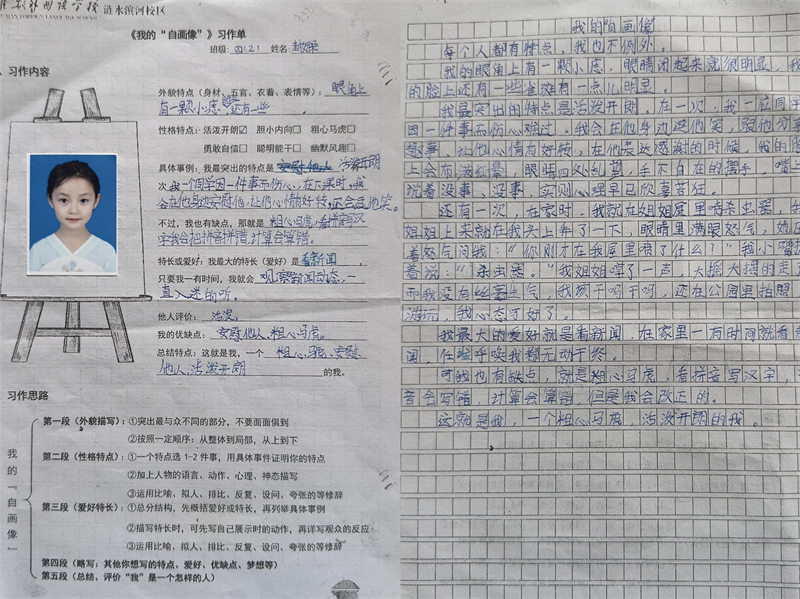 外国语学校 涟水滨河校区
《我的“自画像”》习作单
班级: 四(2) 姓名:
、习作内容
外貌特点(身材、五官、衣着、表情等): 眼角上
有一颗小痣, 还有一些
性格特点: 活泼开朗☑ 胆小内向□ 粗心马虎□
勇敢自信□ 聪明能干□ 幽默风趣□
具体事例: 我最突出的特点是 活泼开朗
次我一个同学因一件事而伤心,在下课时,我
会在他身边安慰他,让他心情好转,还会逗他笑。
不过,我也有缺点,那就是 粗心马虎,看拼音写汉
字我会把拼音拼错,计算会算错。
特长或爱好: 我最大的特长(爱好)是 看新闻
只要我一有时间,我就会 观察新闻动态,一
直入迷的听。
他人评价: 活泼。
我的优缺点: 安慰他人,粗心马虎。
总结特点: 这就是我,一个 粗心、安慰
他人,活泼开朗 的我。
习作思路
我的『自画像』
第一段(外貌描写): ①突出最与众不同的部分,不要面面俱到
②按照一定顺序: 从整体到局部,从上到下
第二段(性格特点): ①一个特点选 1-2 件事,用具体事件证明你的特点
②加上人物的语言、动作、心理、神态描写
③运用比喻、拟人、排比、反复、设问、夸张的等修辞
第三段(爱好特长): ①总分结构,先概括爱好或特长,再列举具体事例
②描写特长时,可先写自己展示时的动作,再详写观众的反应
③运用比喻、拟人、排比、反复、设问、夸张的等修辞
第四段(略写: 其他你想写的特点、爱好、优缺点、梦想等)
第五段(总结、评价“我”是一个怎样的人)
我的“自画像”
每个人都有特点,我也不例外。
我的眼角上有一颗小痣,眼睛闭起来就很明显,我
的脸上还有一些雀斑有一点儿明显。
我最突出的特点是活泼开朗,在一次,我一位同学
因一件事而伤心难过,我会在他身边逗他笑,跟他分
趣事,让他心情有好转,在他表达感谢的时候,我的脸
上会布满红晕,眼睛四处乱瞟,手不自在的摆手,嘴上
说着没事,没事,实则心理早已欣喜若狂。
还有一次,在家时,我就在姐姐屋里喷杀虫器,我
姐姐上来就在我头上弄了一下,眼睛里满眼怒气,她
着怒气问我:“你刚才在我屋里喷了什么?”我小嘴
着说:“杀虫器。”我姐姐哼了一声,大摇大摆的走了
而我没有丝毫生气,我该干吗干吗,还在公园里拍照
游玩,我心态可好了。
我最大的爱好就是看新闻,在家里一有时间就看新
闻,任谁呼唤我都无动于终。
可我也有缺点,就是粗心马虎,看拼音写汉字,
音会写错,计算会算错,但是我会改正的。
这就是我,一个粗心马虎,活泼开朗的我。